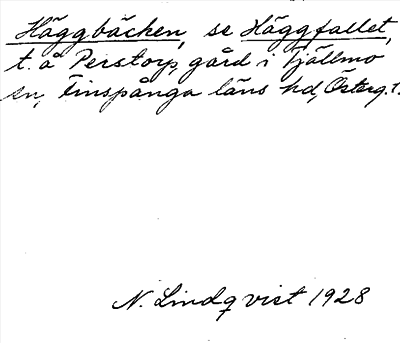 Häggbäcken, se Häggfallet,
t. å Perstorp, gård i Tjällmo
sn, Finspånga läns hd, Österg.l.
N. Lindqvist 1928